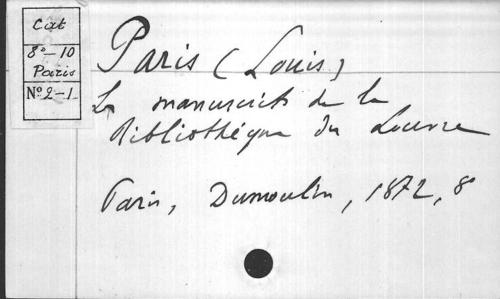 Cat
8°-10
Paris
N° 2-1
Paris (Louis)
Les manuscrits de la
Bibliothèque du Louvre
Paris, Dumoulin, 1872, 8°